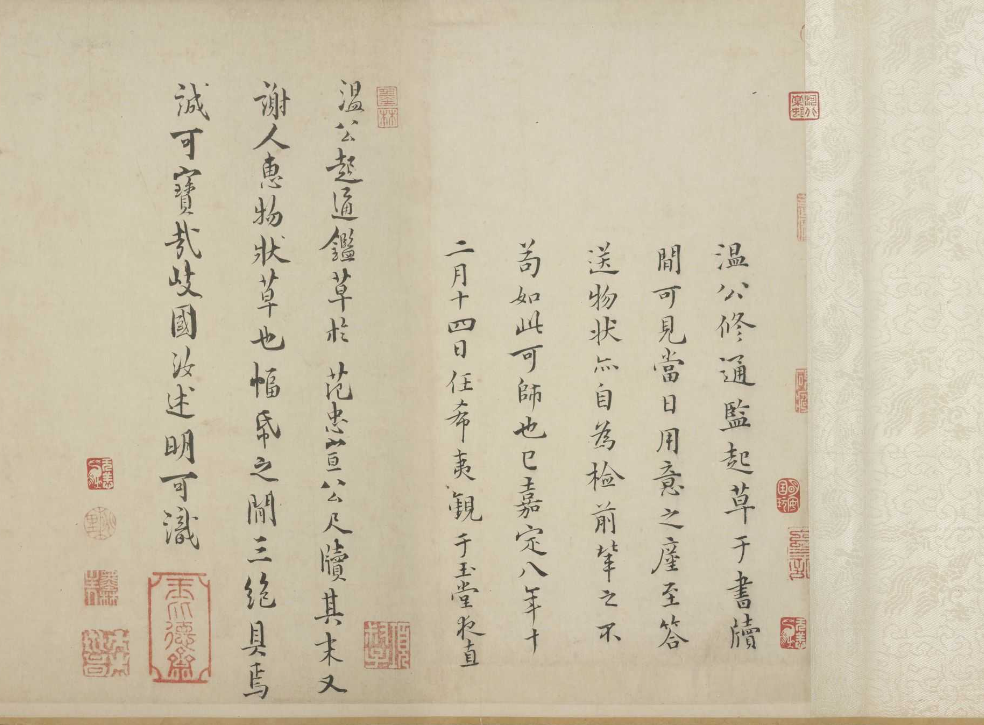 温公修通監起草于書牘
閒可見當日用意之廑至答
送物状亦自為檢前軰之不
苟如此可師也已嘉定八年十
二月十四日任希夷觀于玉堂夜直
温公起通鑑草於范忠宣公尺牘其末又
謝人惠物狀草也幅帋之閒三絶具焉
誠可寶哉歧國汝述明可識